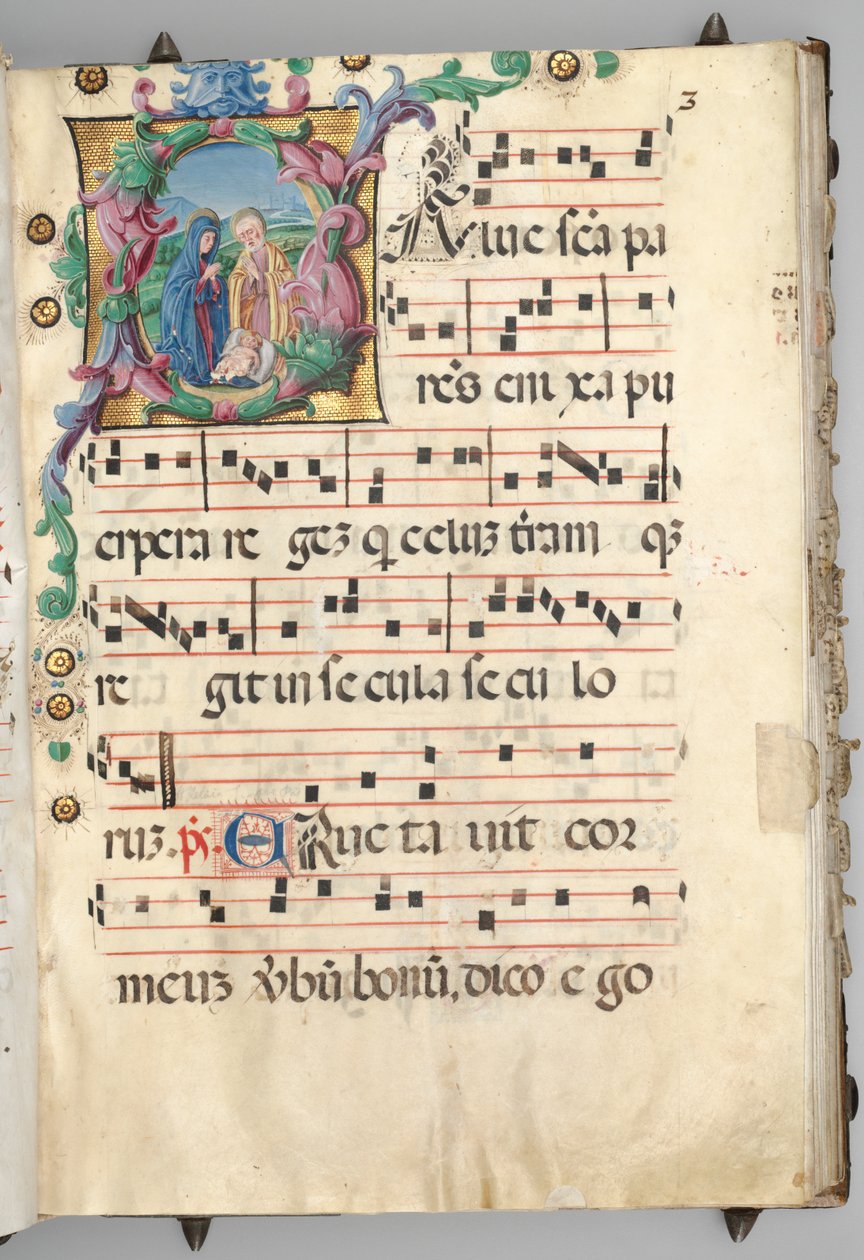 3
SAlue sc̄a pa
rēs enixa pu
erpera re geʒ q̄ celuʒ t̄ram qʒ
re git in secula seculo
ruʒ. p̄s. ERucta uit cor
meuʒ v̄bū bonū, dico ego